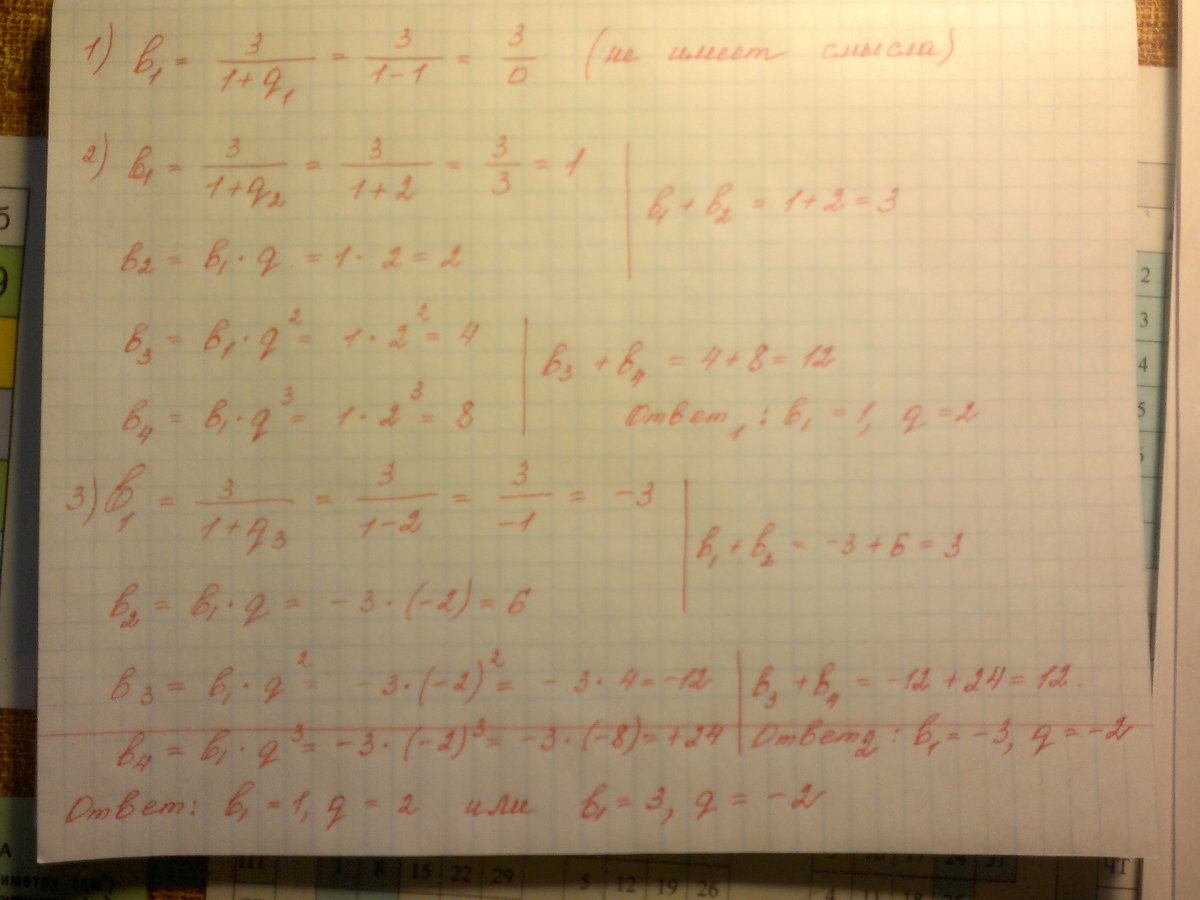 1) b₁ = 3/(1+q₁) = 3/(1-1) = 3/0 (не имеет смысла)
2) b₁ = 3/(1+q₂) = 3/(1+2) = 3/3 = 1
b₁ + b₂ = 1+2 = 3
b₂ = b₁ · q = 1 · 2 = 2
b₃ = b₁ · q² = 1 · 2² = 4
b₃ + b₄ = 4+8 = 12
b₄ = b₁ · q³ = 1 · 2³ = 8
Ответ₁: b₁ = 1, q = 2
3) b₁ = 3/(1+q₃) = 3/(1-2) = 3/-1 = -3
b₁ + b₂ = -3+6 = 3
b₂ = b₁ · q = -3 · (-2) = 6
b₃ = b₁ · q² = -3 · (-2)² = -3 · 4 = -12
b₃ + b₄ = -12+24 = 12.
b₄ = b₁ · q³ = -3 · (-2)³ = -3 · (-8) = +24
Ответ₂: b₁ = -3, q = -2
Ответ: b₁ = 1, q = 2 или b₁ = 3, q = -2
б
9
2
3
4
5
А
иметру (дм³)
ПТ 1 8 15 22 29
5 12 19 26
4 11 18
24 31
ЧТ